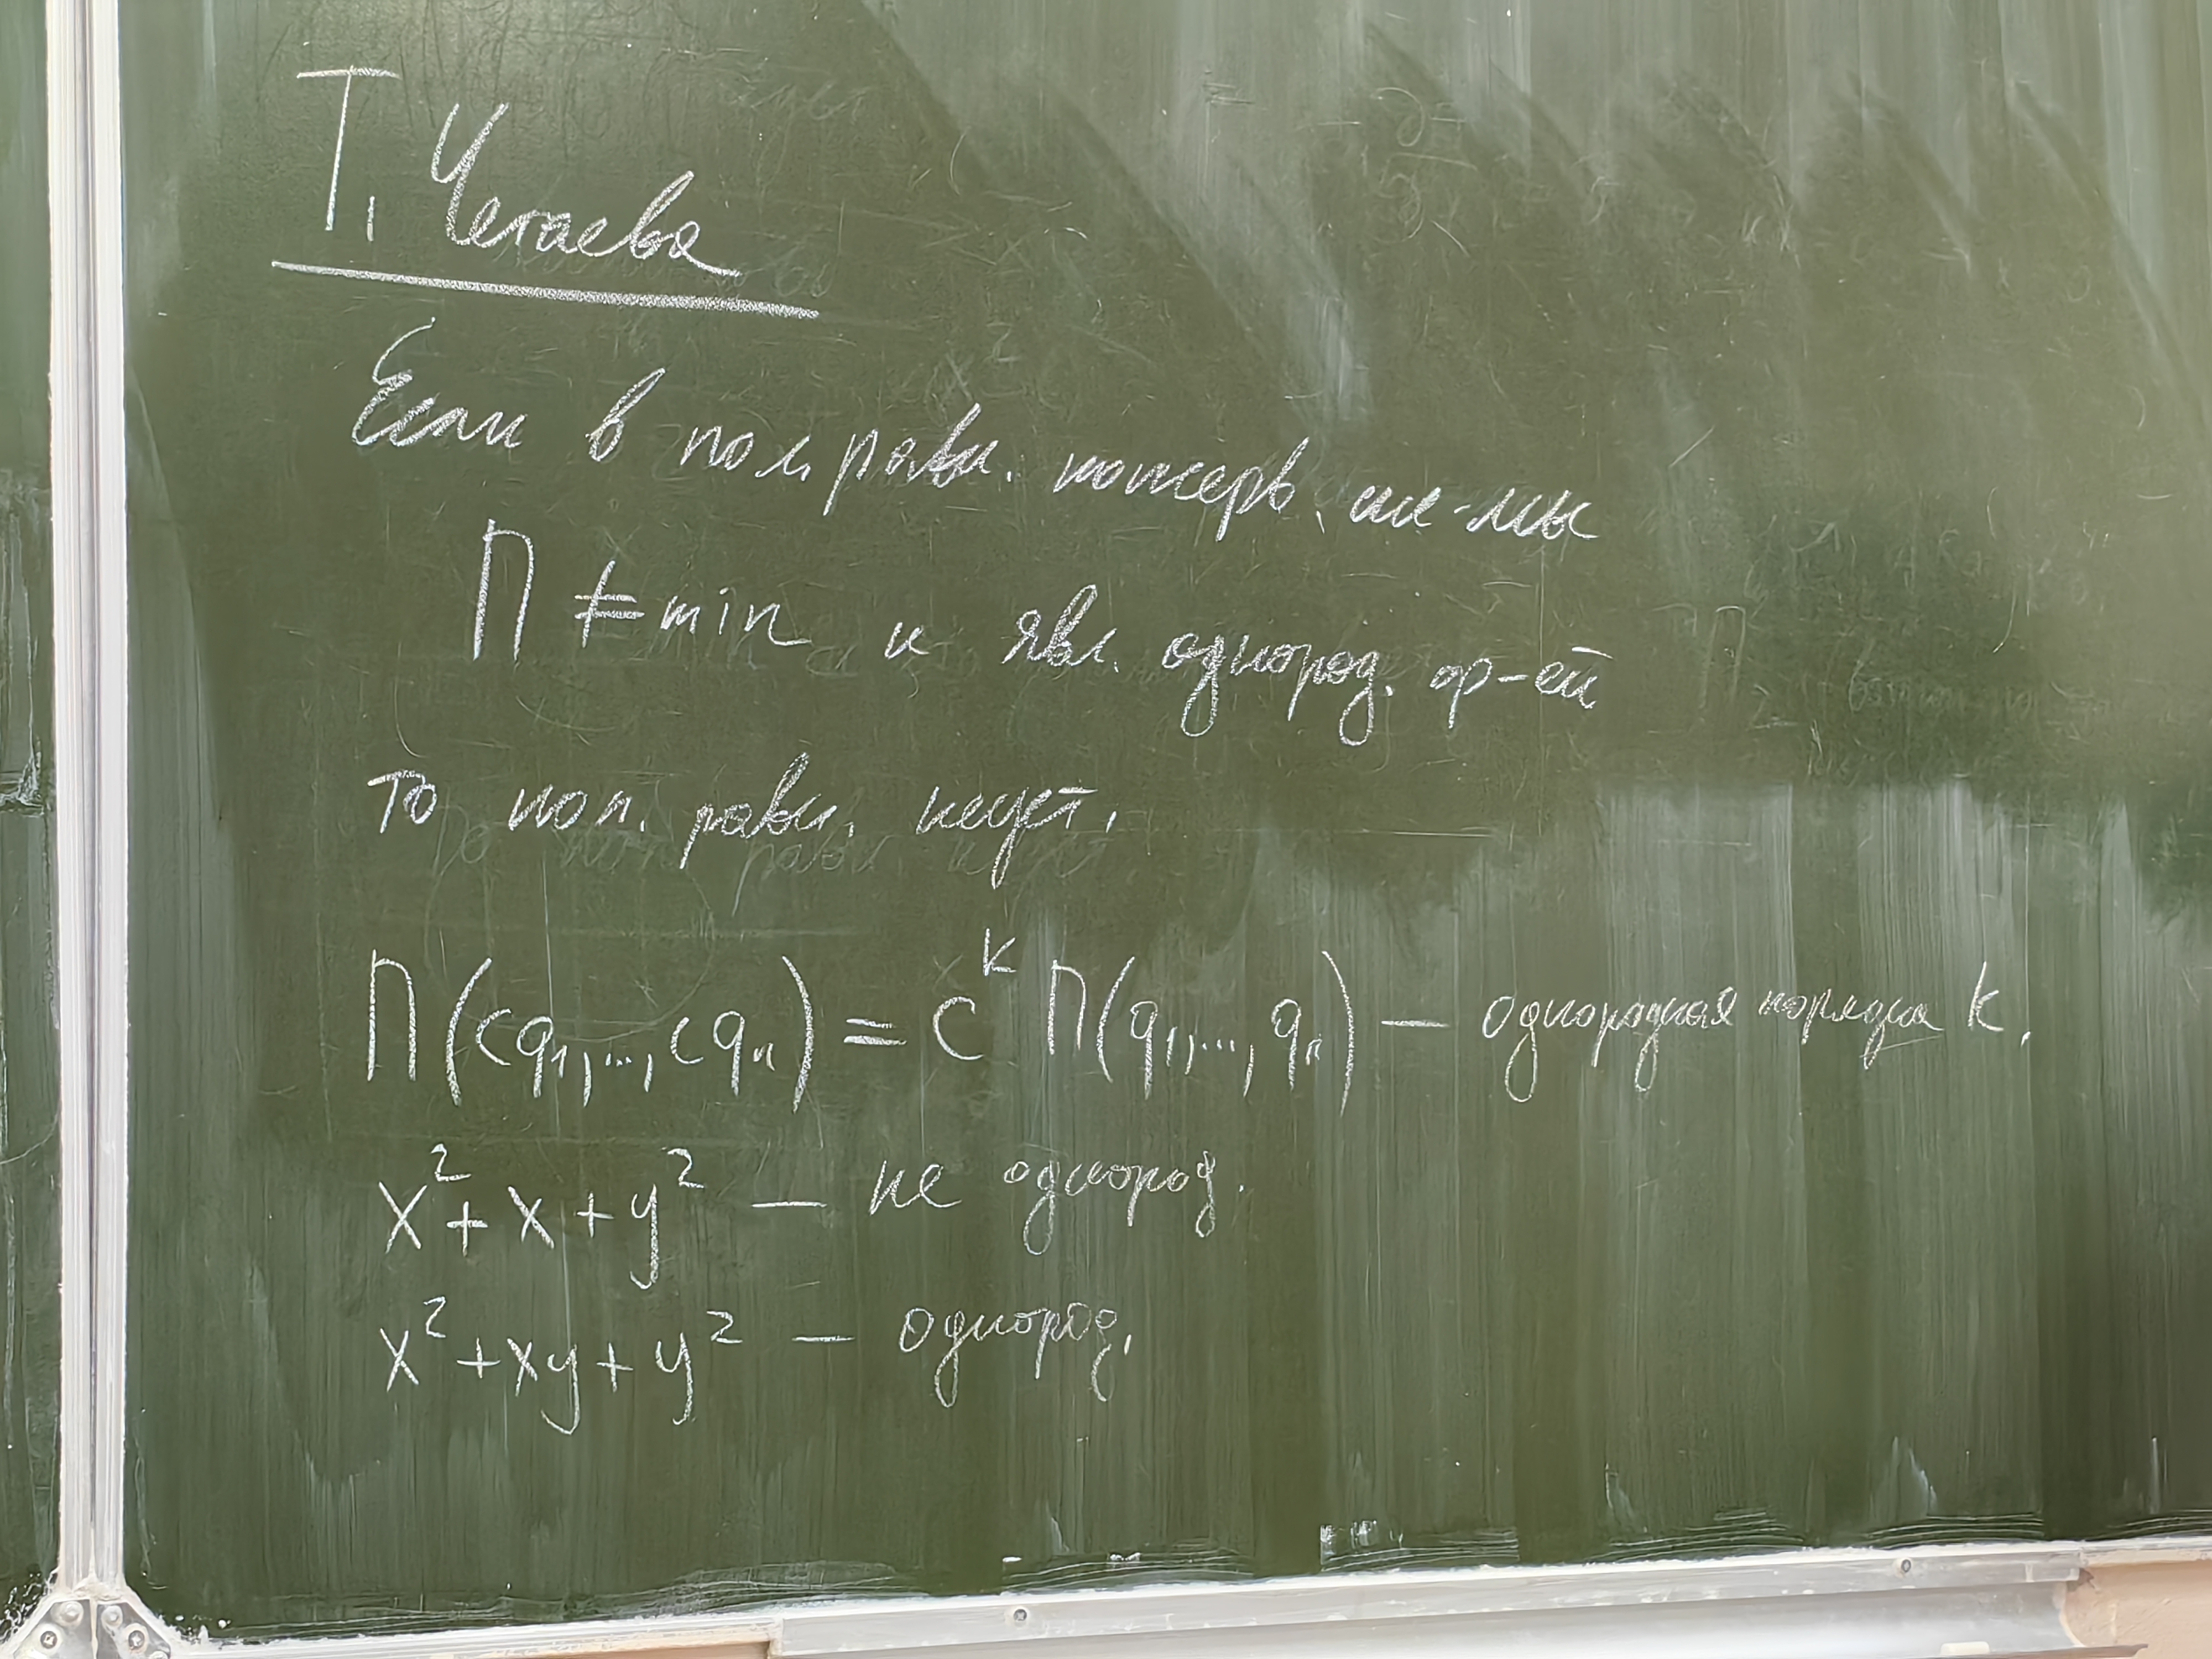 Т. Четаева
Если в пол. равн. консерв. сис-мы
П ≠ min и явл. однород. ф-ей
то пол. равн. неуст.
П(cq₁,...,cqₙ) = cᵏ П(q₁,...,qₙ) — однородная порядка k.
x² + x + y² — не однород.
x² + xy + y² — однород.